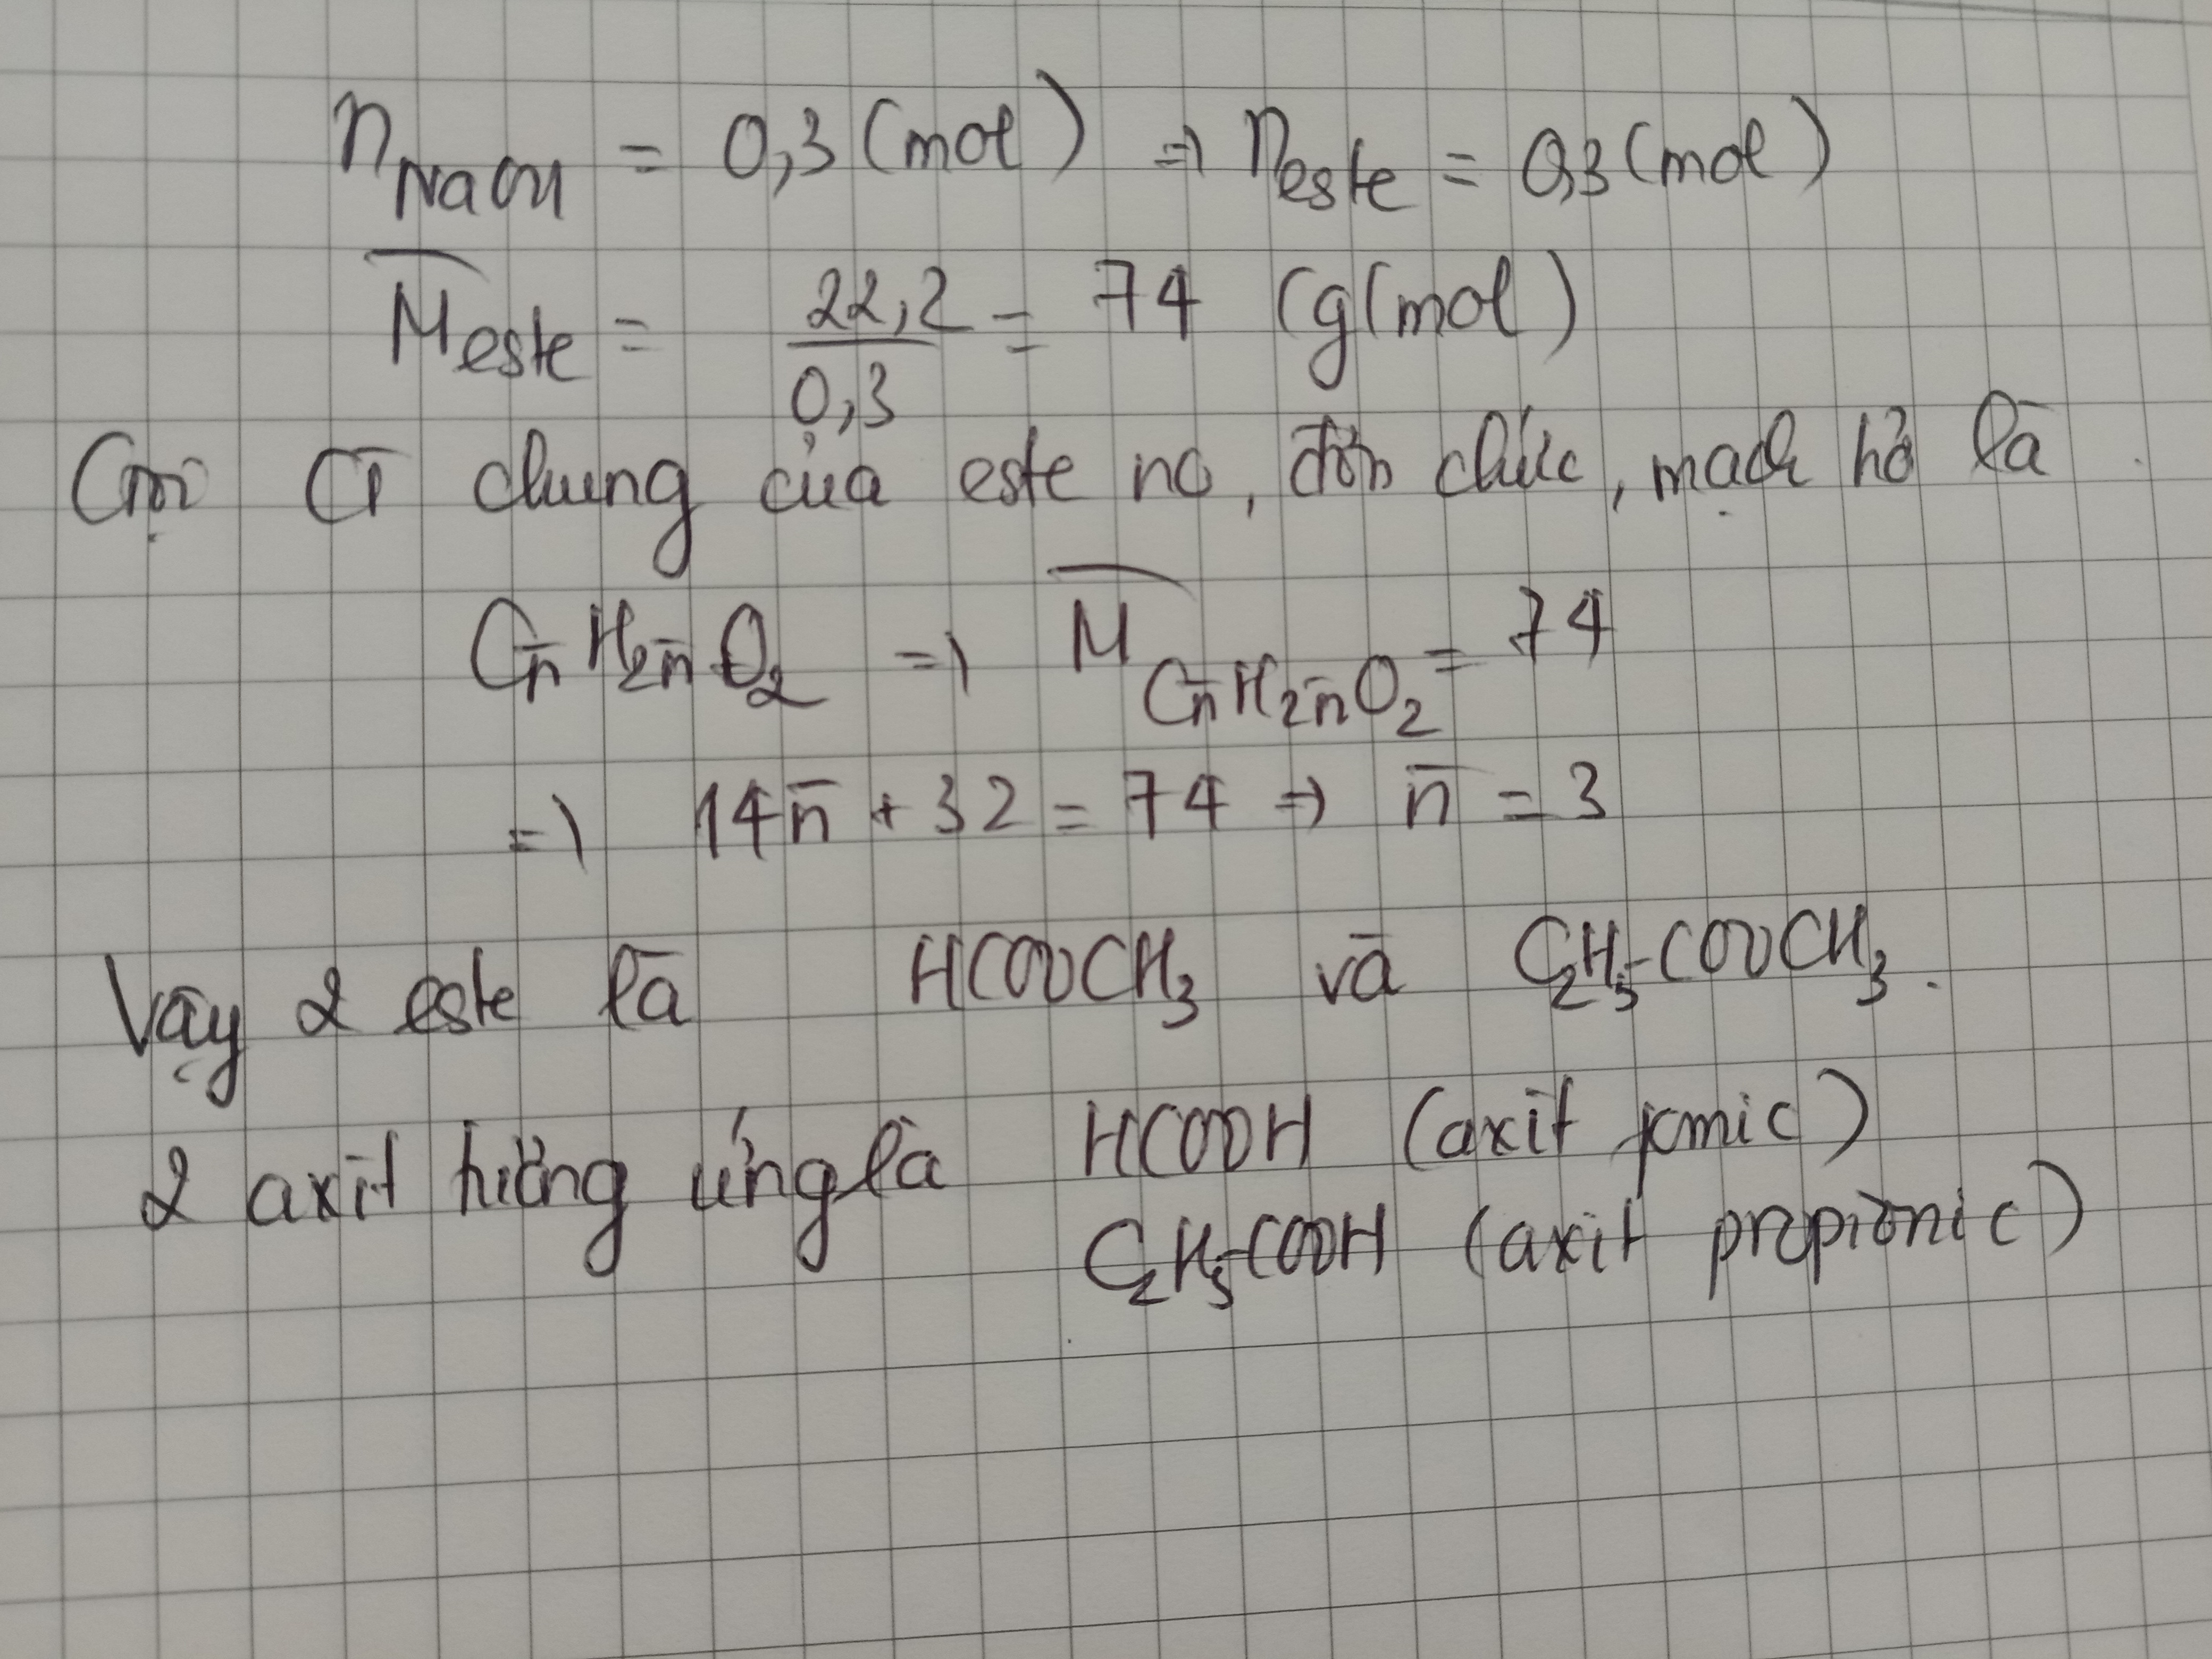 n NaOH = 0,3 (mol) => n este = 0,3 (mol)
M̅ este = 22,2 / 0,3 = 74 (g/mol)
Gọi CT chung của este no, đơn chức, mạch hở là
Cn̅H2n̅O2 => M̅ Cn̅H2n̅O2 = 74
=> 14n̅ + 32 = 74 => n̅ = 3
Vậy 2 este là HCOOCH3 và C2H5-COOCH3.
2 axit tương ứng là HCOOH (axit fomic)
C2H5-COOH (axit propionic)